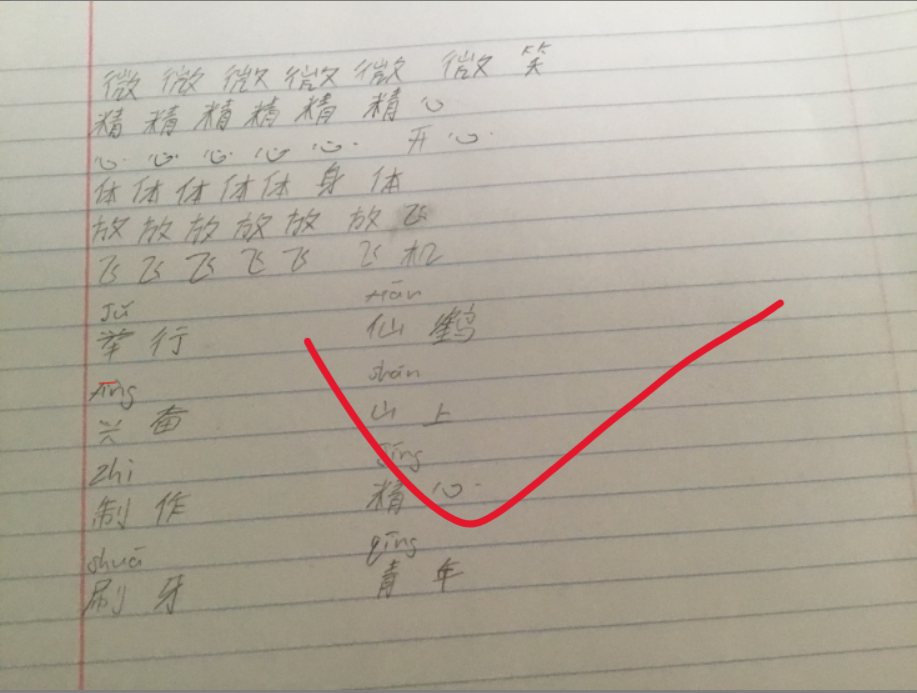 微 微 微 微 微 微 笑
精 精 精 精 精 精 心
心 心 心 心 心 开 心
体 体 体 体 体 身 体
放 放 放 放 放 放 飞
飞 飞 飞 飞 飞 飞 机
Jǔ xiān
举 行 仙 鹤
xīng shān
兴 奋 山 上
zhì jīng
制 作 精 心
shuā qīng
刷 牙 青 年